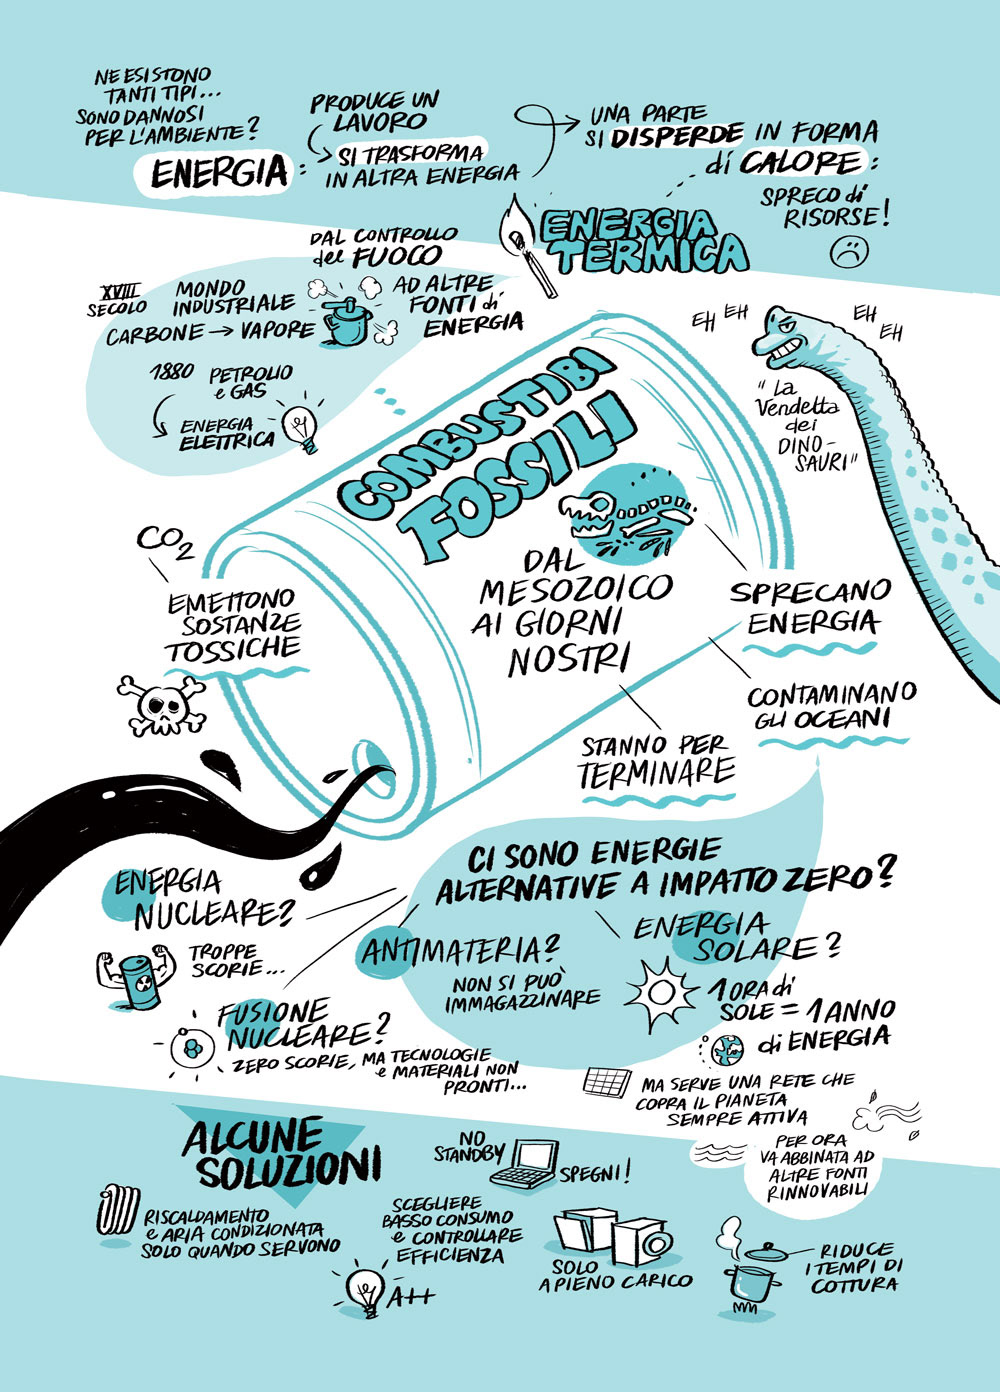 NE ESISTONO
TANTI TIPI...
SONO DANNOSI
PER L'AMBIENTE?
ENERGIA:
PRODUCE UN
LAVORO
SI TRASFORMA
IN ALTRA ENERGIA
UNA PARTE
SI DISPERDE IN FORMA
di CALORE:
SPRECO di
RISORSE!
ENERGIA
TERMICA
DAL CONTROLLO
del FUOCO
AD ALTRE
FONTI di
ENERGIA
XVIII
SECOLO
MONDO
INDUSTRIALE
CARBONE → VAPORE
1880
PETROLIO
e GAS
ENERGIA
ELETTRICA
EH EH
EH
EH
"La
Vendetta
dei
DINO-
SAURI"
COMBUSTIBI
FOSSILI
DAL
MESOZOICO
AI GIORNI
NOSTRI
CO2
EMETTONO
SOSTANZE
TOSSICHE
SPRECANO
ENERGIA
CONTAMINANO
GLI OCEANI
STANNO PER
TERMINARE
CI SONO ENERGIE
ALTERNATIVE A IMPATTO ZERO?
ENERGIA
NUCLEARE?
TROPPE
SCORIE...
ANTIMATERIA?
NON SI PUÒ
IMMAGAZZINARE
FUSIONE
NUCLEARE?
ZERO SCORIE, MA TECNOLOGIE
e MATERIALI NON
PRONTI...
ENERGIA
SOLARE?
1 ORA di
SOLE = 1 ANNO
di ENERGIA
MA SERVE UNA RETE CHE
COPRA IL PIANETA
SEMPRE ATTIVA
PER ORA
VA ABBINATA AD
ALTRE FONTI
RINNOVABILI
ALCUNE
SOLUZIONI
RISCALDAMENTO
e ARIA CONDIZIONATA
SOLO QUANDO SERVONO
NO
STANDBY
SPEGNI!
SCEGLIERE
BASSO CONSUMO
e CONTROLLARE
EFFICIENZA
A++
SOLO
A PIENO CARICO
RIDUCE
I TEMPI DI
COTTURA